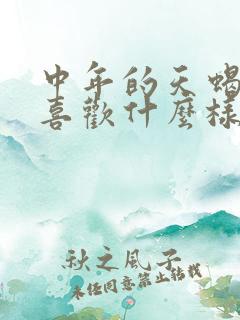 中年的天蝎
喜歡什麼樣
秋之風子
未任同意禁止轉載